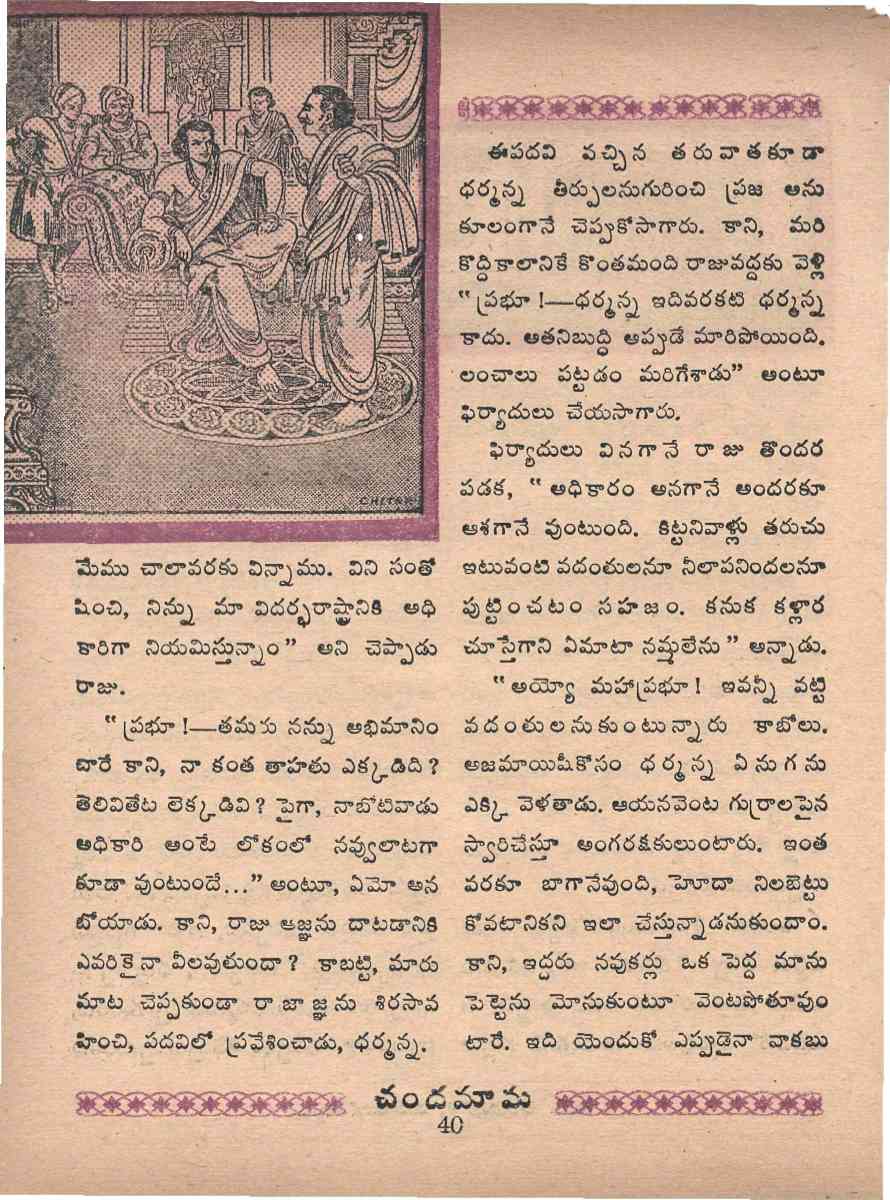 మేము చాలావరకు విన్నాము. విని సంతో
షించి, నిన్ను మా విదర్భరాష్ట్రానికి అధి
కారిగా నియమిస్తున్నాం" అని చెప్పాడు
రాజు.
"ప్రభూ !—తమకు నన్ను అభిమానిం
చారే కాని, నా కంత తాహతు ఎక్కడిది ?
తెలివితేట లెక్కడివి ? పైగా, నాబోటివాడు
అధికారి అంటే లోకంలో నవ్వులాటగా
కూడా వుంటుందే..." అంటూ, ఏమో అన
బోయాడు. కాని, రాజు అజ్ఞను దాటడానికి
ఎవరికైనా వీలవుతుందా ? కాబట్టి, మారు
మాట చెప్పకుండా రాజాజ్ఞను శిరసావ
హించి, పదవిలో ప్రవేశించాడు, ధర్మన్న.
ఈపదవి వచ్చిన తరువాతకూడా
ధర్మన్న తీర్పులనుగురించి ప్రజ అను
కూలంగానే చెప్పుకోసాగారు. కాని, మరి
కొద్దికాలానికే కొంతమంది రాజువద్దకు వెళ్లి
"ప్రభూ !—ధర్మన్న ఇదివరకటి ధర్మన్న
కాదు. అతనిబుద్ధి అప్పుడే మారిపోయింది.
లంచాలు పట్టడం మరిగేశాడు" అంటూ
ఫిర్యాదులు చేయసాగారు.
ఫిర్యాదులు వినగానే రాజు తొందర
పడక, "అధికారం అనగానే అందరకూ
ఆశగానే వుంటుంది. కిట్టనివాళ్లు తరుచు
ఇటువంటి వదంతులనూ నీలాపనిందలనూ
పుట్టించటం సహజం. కనుక కళ్లార
చూస్తేగాని ఏమాటా నమ్మలేను" అన్నాడు.
"అయ్యో మహాప్రభూ ! ఇవన్నీ వట్టి
వదంతులనుకుంటున్నారు కాబోలు.
అజమాయిషీకోసం ధర్మన్న ఏనుగను
ఎక్కి వెళతాడు. ఆయనవెంట గుర్రాలపైన
స్వారిచేస్తూ అంగరక్షకులుంటారు. ఇంత
వరకూ బాగానేవుంది, హెూదా నిలబెట్టు
కోవటానికని ఇలా చేస్తున్నాడనుకుందాం.
కాని, ఇద్దరు నవుకర్లు ఒక పెద్ద మాను
పెట్టెను మోసుకుంటూ వెంటపోతూవుం
టారే. ఇది యెందుకో ఎప్పుడైనా వాకబు
చందమామ
40
CHITRA